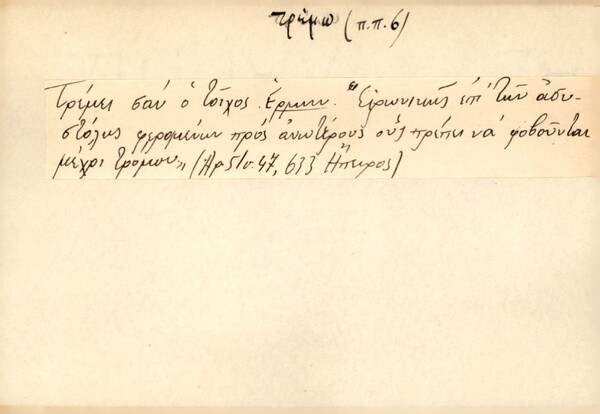 τρέμω (π.π.6)
Τρέμει σαν ὁ τοῖχος. Ἑρμην. "Εἰρωνικῶς ἐπὶ τῶν ἀδια-
στόλως φερομένων πρός ἀνωτέρους οὓς πρέπει νά φοβοῦνται
μέχρι τρόμου„ (Ἀρ 510.47, 633 Ἤπειρος)